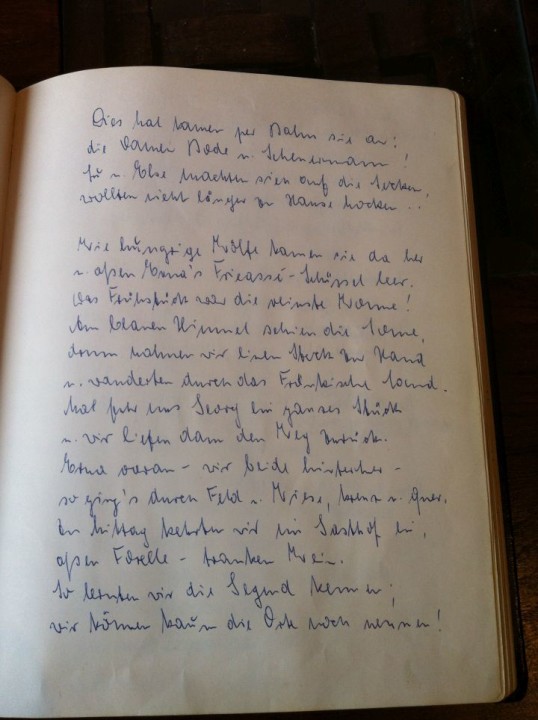 Dies Mal kamen per Bahn sie an:
die Damen Bode u. Scheuermann!
Lu u. Else machten sich auf die Socken,
wollten nicht länger zu Hause hocken..
Wie hungrige Wölfe kamen sie da her
u. aßen Erna's Fricassé-Schüssel leer.
Das Frühstück war die reinste Wonne!
Am blauen Himmel schien die Sonne,
drum nahmen wir einen Stock zur Hand
u. wanderten durch das Fränkische Land.
Mal fuhr uns Georg ein ganzes Stück
u. wir liefen dann den Weg zurück.
Erna voran - wir beide hinterher -
so ging's durch Feld u. Wiese, kreuz u. quer.
Zu Mittag kehrten wir im Gasthof ein,
aßen Forelle - tranken Wein.
So lernten wir die Gegend kennen;
wir können kaum die Orte noch nennen!